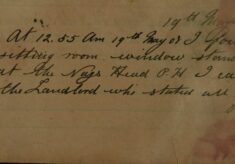 19th May
At 12.55 Am 19th May 08 I fou
sitting room window stand
at the Nags Head P.H I ca
the Landlord who stated all